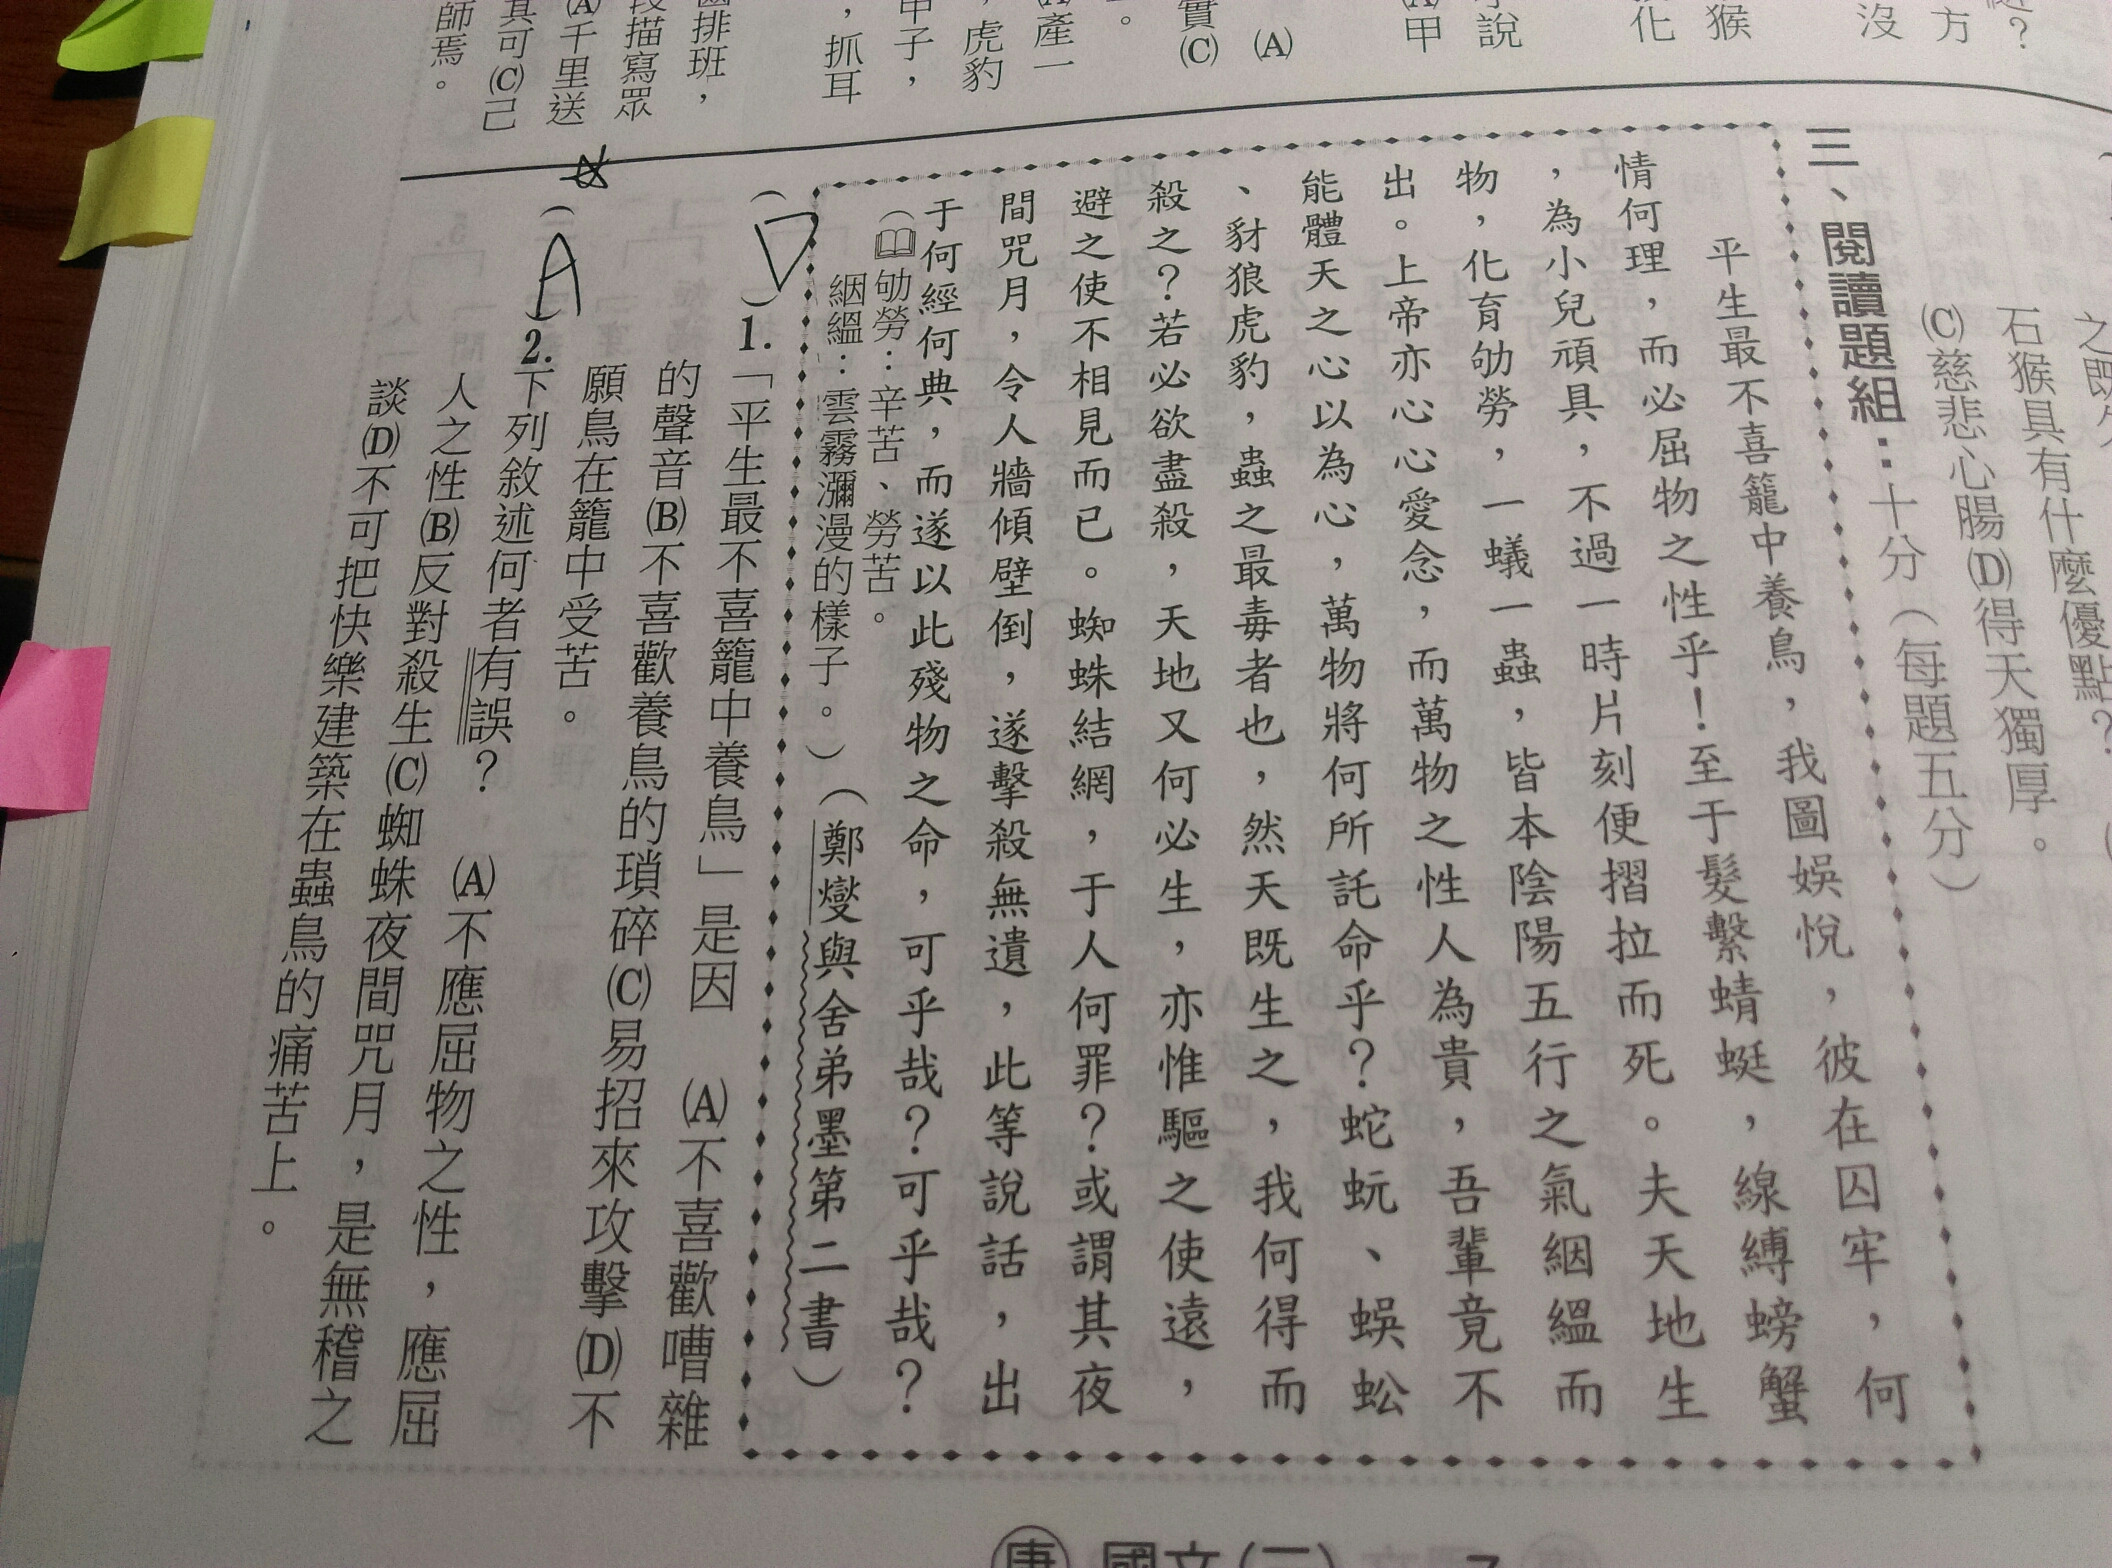 方
沒
猴
化
說
(A)甲
(A)
實(C)
產一
,虎豹
甲子,
,抓耳
排班,
段描寫眾
(A)千里送
其可(C)己
師焉。
之既
石猴具有什麼優點?
(C)慈悲心腸(D)得天獨厚。
三、閱讀題組:十分(每題五分)
平生最不喜籠中養鳥,我圖娛悅,彼在囚牢,何
情何理,而必屈物之性乎!至于髮繫蜻蜓,線縛螃蟹
,為小兒頑具,不過一時片刻便摺拉而死。夫天地生
物,化育劬勞,一蟻一蟲,皆本陰陽五行之氣絪縕而
出。上帝亦心心愛念,而萬物之性人為貴,吾輩竟不
能體天之心以為心,萬物將何所託命乎?蛇蚖、蜈蚣
、豺狼虎豹,蟲之最毒者也,然天既生之,我何得而
殺之?若必欲盡殺,天地又何必生,亦惟驅之使遠,
避之使不相見而已。蜘蛛結網,于人何罪?或謂其夜
間咒月,令人牆傾壁倒,遂擊殺無遺,此等說話,出
于何經何典,而遂以此殘物之命,可乎哉?可乎哉?
(劬勞:辛苦、勞苦。
絪縕:雲霧瀰漫的樣子。)(鄭燮與舍弟墨第二書)
(D)1.「平生最不喜籠中養鳥」是因 (A)不喜歡嘈雜
的聲音(B)不喜歡養鳥的瑣碎(C)易招來攻擊(D)不
願鳥在籠中受苦。
(A)2.下列敘述何者有誤? (A)不應屈物之性,應屈
人之性(B)反對殺生(C)蜘蛛夜間咒月,是無稽之
談(D)不可把快樂建築在蟲鳥的痛苦上。
康 國文(三) 7